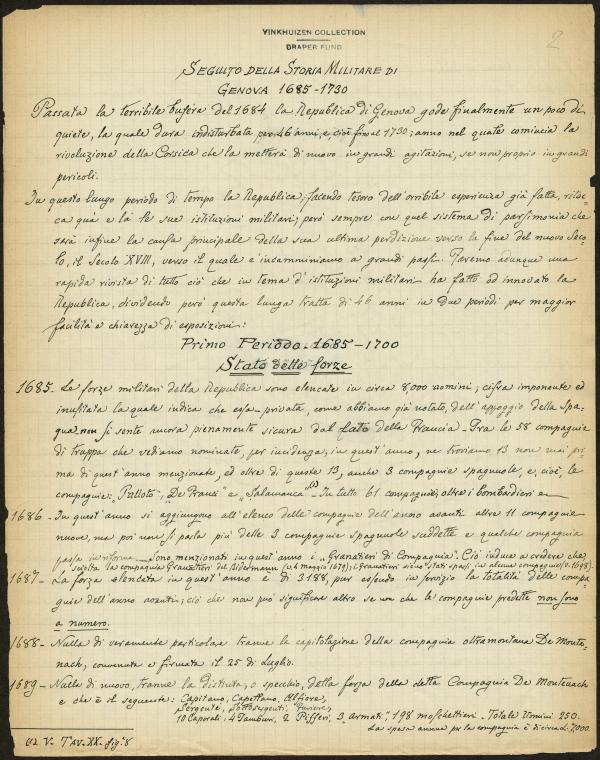 VINKHUIZEN COLLECTION
DRAPER FUND
2
SEGUITO DELLA STORIA MILITARE DI
GENOVA 1685-1730
Passata la terribile bufera del 1684 la Republica di Genova gode finalmente un poco di
quiete, la quale dura indisturbata per 46 anni, e cioè fino al 1730; anno nel quale comincia la
rivoluzione della Corsica che la metterà di nuovo in grandi agitazioni, se non proprio in grandi
pericoli.
In questo lungo periodo di tempo la Republica, facendo tesoro dell'orribile esperienza già fatta, ritoc=
ca quà e là le sue istituzioni militari; però sempre con quel sistema di parsimonia che
sarà infine la causa principale della sua ultima perdizione verso la fine del nuovo Seco=
lo, il Secolo XVIII, verso il quale c'incamminiamo a grandi passi. Faremo adunque una
rapida rivista di tutto ciò che in tema d'istituzioni militari ha fatto od innovato la
Republica, dividendo però questa lunga tratta di 46 anni in due periodi per maggior
facilità e chiarezza di esposizioni:
Primo Periodo - 1685-1700
Stato delle forze
1685 - Le forze militari della Republica sono elencate in circa 8,000 uomini; cifra imponente ed
inusitata la quale indica che essa - privata, come abbiamo già notato, dell'appoggio della Spa=
gna non si sente ancora pienamente sicura dal lato della Francia - Fra le 58 compagnie
di truppa che vediamo nominate, per incidenza, in quest'anno, ne troviamo 13 non mai pri=
ma di quest'anno menzionate, ed oltre di queste 13, anche 3 compagnie spagnuole, e, cioè, le
compagnie: "Pulloto", "De Franzi" e "Salamanca" (1) - In tutto 61 compagnie, oltre i bombardieri
1686 - In quest'anno si aggiungono all'elenco delle compagnie dell'anno avanti altre 11 compagnie
nuove, ma poi non si parla più delle 3 compagnie spagnuole suddette e qualche compagnia
passa in riforma - Sono menzionati in quest'anno i "Granatieri di Compagnia". Ciò induce a credere che
sciolta la compagnia Granatieri de Bidermann (v. 4 maggio 1679), i Granatieri siano stati sparsi in alcune compagnie (v. 1698).
1687 - La forza elencata in quest'anno è di 3188, pur essendo in servizio la totalità delle compa=
gnie dell'anno avanti; ciò che non può significare altro se non che le compagnie predette non sono
a numero.
1688 - Nulla di veramente particolare tranne la capitolazione della compagnia oltramontana De Monte=
nach, convenuta e firmata il 25 di Luglio.
1689 - Nulla di nuovo, tranne la distinta, o specchio, della forza della detta Compagnia De Montenach
e che è il seguente: Capitano, Capellano, Alfiere,
Sergente, Sottosergenti, Furiere,
10 Caporali, 4 Tamburi, 2 Pifferi, 3 "Armati", 198 moschettieri - Totale Uomini 250.
La spesa annua per la compagnia è di circa L. 7,000.
(1) V. TAV. XX. fig. 8